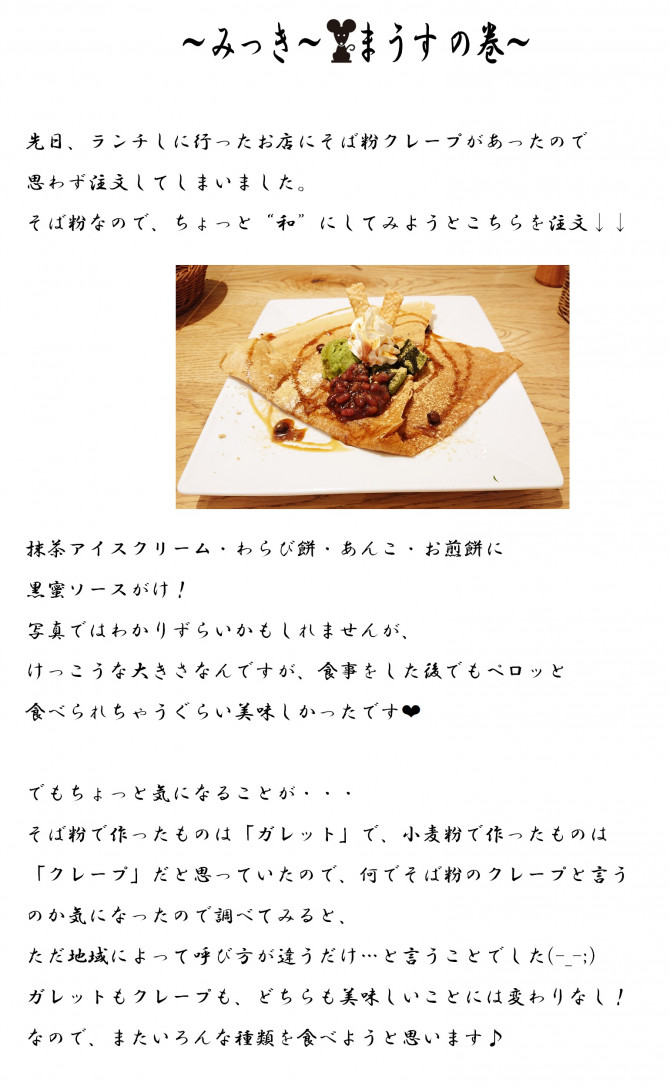 ～みっき～まうすの巻～
先日、ランチしに行ったお店にそば粉クレープがあったので
思わず注文してしまいました。
そば粉なので、ちょっと“和”にしてみようとこちらを注文↓↓
抹茶アイスクリーム・わらび餅・あんこ・お煎餅に
黒蜜ソースがけ！
写真ではわかりずらいかもしれませんが、
けっこうな大きさなんですが、食事をした後でもペロッと
食べられちゃうぐらい美味しかったです❤
でもちょっと気になることが・・・
そば粉で作ったものは「ガレット」で、小麦粉で作ったものは
「クレープ」だと思っていたので、何でそば粉のクレープと言う
のか気になったので調べてみると、
ただ地域によって呼び方が違うだけ…と言うことでした(-_-;)
ガレットもクレープも、どちらも美味しいことには変わりなし！
なので、またいろんな種類を食べようと思います♪